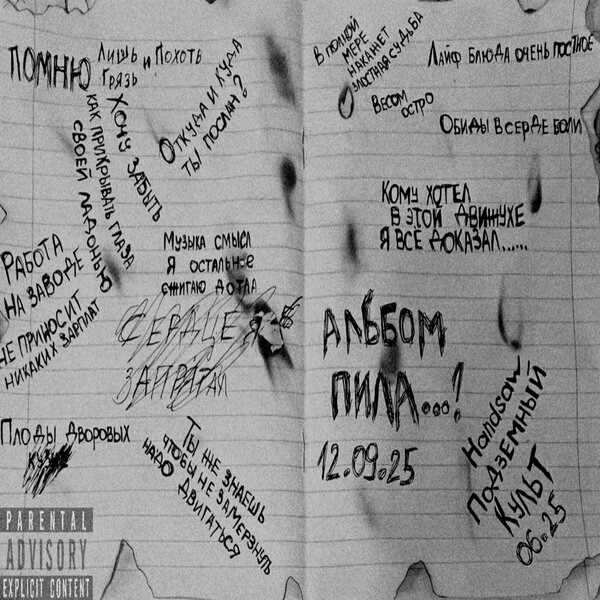 ПОМНЮ
ЛИШЬ И ПОХОТЬ
ГРЯЗЬ
ХОЧУ ЗАБЫТЬ
КАК ПРИКРЫВАТЬ ГЛАЗА
СВОЕЙ ЛАДОНЬЮ
ОТКУДА И КУДА
ТЫ ПОСЛАН?
РАБОТА
НА ЗАВОДЕ
НЕ ПРИНОСИТ
НИКАКИХ ЗАРПЛАТ
МУЗЫКА СМЫСЛ
Я ОСТАЛЬНОЕ
СЖИГАЮ ДОТЛА
СЕРДЦЕ Я
ПЛОДЫ ДВОРОВЫХ
ТЫ ЖЕ ЗНАЕШЬ
ЧТОБЫ НЕ ЗАМЕРЗНУТЬ
НАДО ДВИГАТЬСЯ
PARENTAL
ADVISORY
EXPLICIT CONTENT
В ПОЛНОЙ
МЕРЕ
НАКАЖЕТ
ЗЛОСТНАЯ СУДЬБА
ВЕСОМ
ОСТРО
ЛАЙФ БЛЮДА ОЧЕНЬ ПОСТНОЕ
ОБИДЫ В СЕРДЕ БОЛИ
КОМУ ХОТЕЛ
В ЭТОЙ ДВИЖУХЕ
Я ВСЁ ДОКАЗАЛ......
АЛЬБОМ
ПИЛА...!
12.09.25
Handsaw
ПОДЗЕМНЫЙ
КУЛЬТ
06.25